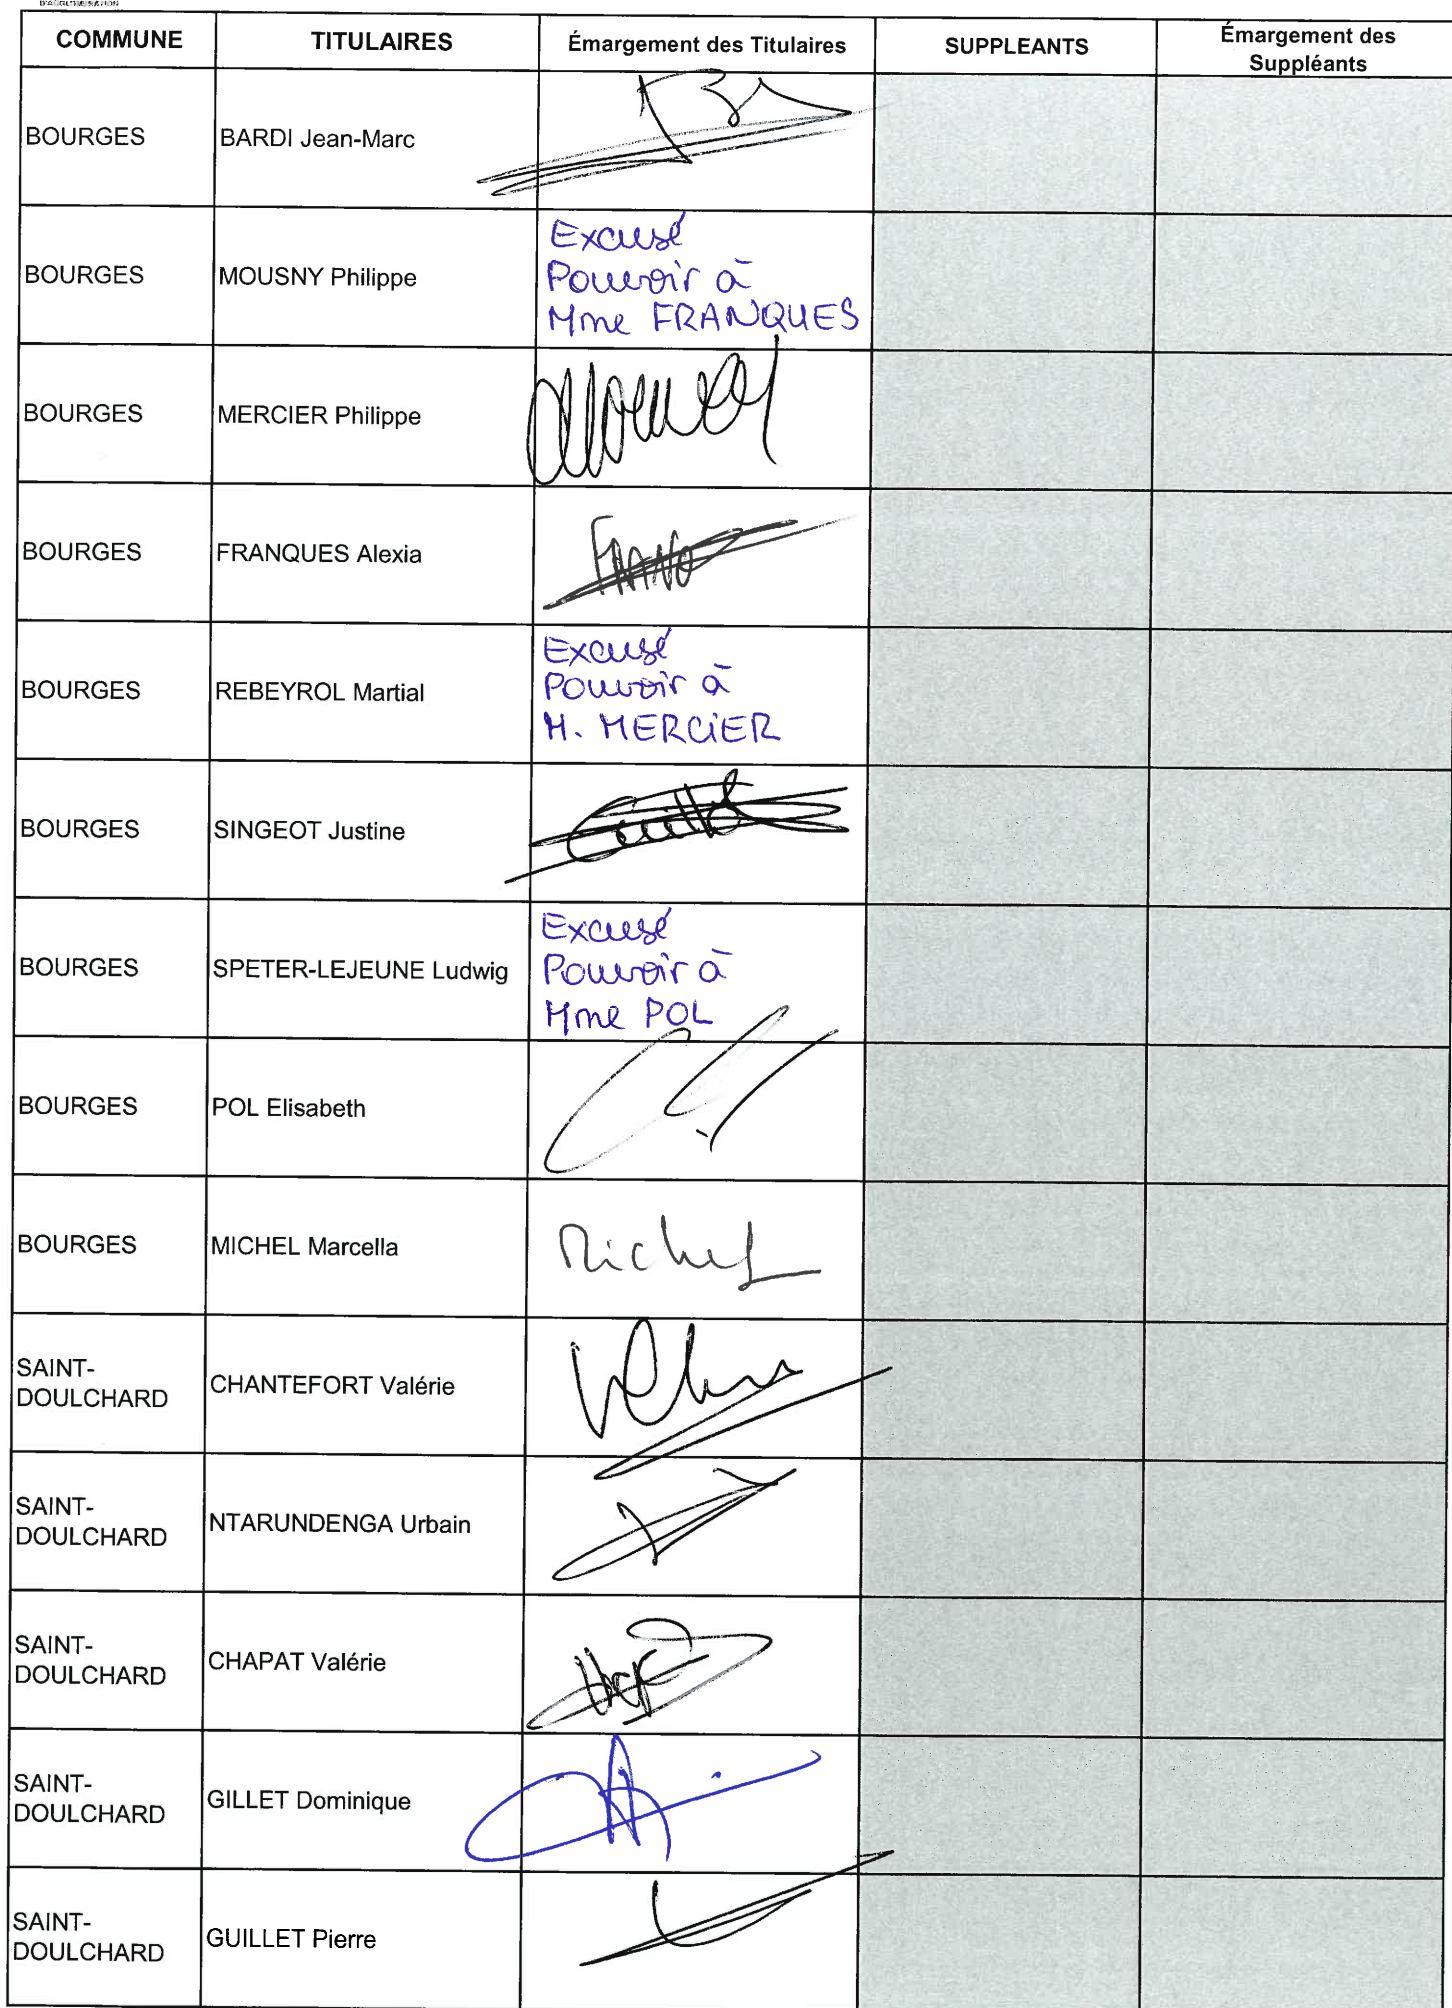 D'AGGLOMÉRATION
COMMUNE
TITULAIRES
Émargement des Titulaires
SUPPLEANTS
Émargement des
Suppléants
BOURGES
BARDI Jean-Marc
BOURGES
MOUSNY Philippe
Excusé
Pouvoir à
Mme FRANQUES
BOURGES
MERCIER Philippe
BOURGES
FRANQUES Alexia
BOURGES
REBEYROL Martial
Excusé
Pouvoir à
M. MERCIER
BOURGES
SINGEOT Justine
BOURGES
SPETER-LEJEUNE Ludwig
Excusé
Pouvoir à
Mme POL
BOURGES
POL Elisabeth
BOURGES
MICHEL Marcella
Michel
SAINT-
DOULCHARD
CHANTEFORT Valérie
SAINT-
DOULCHARD
NTARUNDENGA Urbain
SAINT-
DOULCHARD
CHAPAT Valérie
SAINT-
DOULCHARD
GILLET Dominique
SAINT-
DOULCHARD
GUILLET Pierre